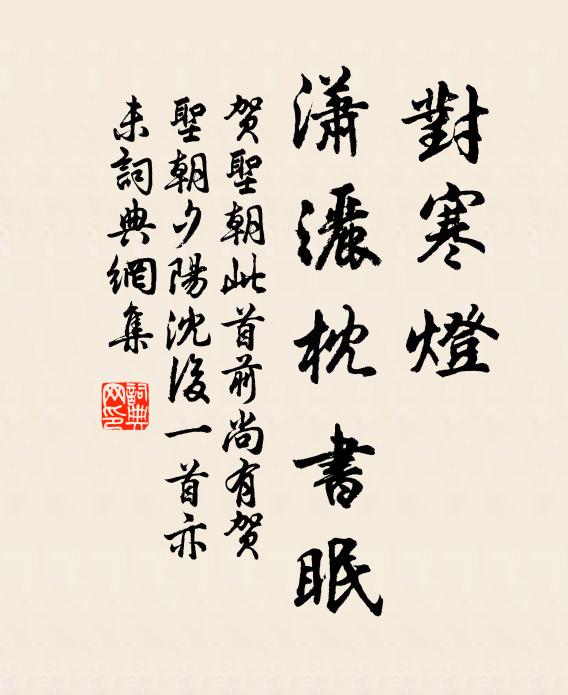 對寒燈
瀟灑枕書眠
賀聖朝此首前尚有賀
聖朝夕陽沈後一首亦
未詞典網集
詞典網印